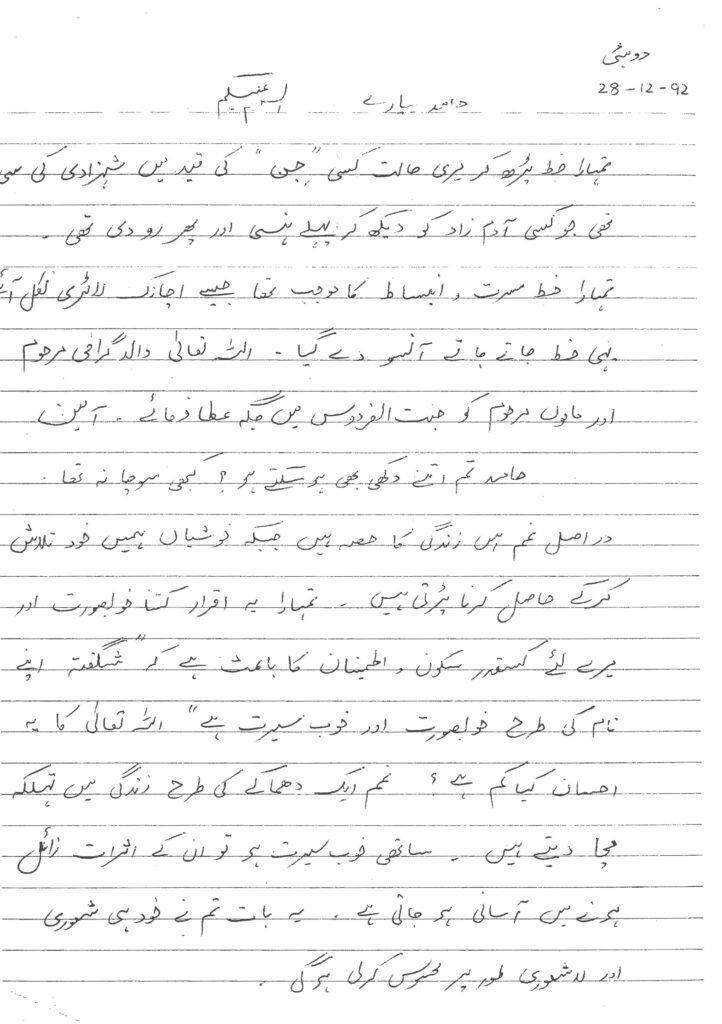 دوبئی
28-12-92
حامد پیارے السلام علیکم
تمہارا خط پڑھ کر میری حالت کسی "جن" کی قید میں شہزادی کی سی
تھی جو کسی آدم زاد کو دیکھ کر پہلے ہنسی اور پھر رو دی تھی ۔
تمہارا خط مسرت و انبساط کا موجب تھا جیسے اچانک لاٹری نکل آئے
یہی خط جاتے جاتے آنسو دے گیا ۔ اللہ تعالیٰ والد گرامی مرحوم
اور ماموں مرحوم کو جنت الفردوس میں جگہ عطا فرمائے ۔ آمین
حامد تم اتنے دکھی بھی ہو سکتے ہو ؟ کبھی سوچا نہ تھا ۔
دراصل غم ہیں زندگی کا حصہ ہیں جبکہ خوشیاں ہمیں خود تلاش
کرکے حاصل کرنا پڑتی ہیں ۔ تمہارا یہ اقرار کتنا خوبصورت اور
میرے لئے کسقدر سکون و اطمینان کا باعث ہے کہ "شگفتہ اپنے
نام کی طرح خوبصورت اور خوب سیرت ہے" اللہ تعالیٰ کا یہ
احسان کیا کم ہے ؟ غم ایک دھماکے کی طرح زندگی میں تہلکہ
مچا دیتے ہیں ۔ ساتھی خوب سیرت ہو تو ان کے اثرات زائل
ہونے میں آسانی ہو جاتی ہے ۔ یہ بات تم نے خود ہی شعوری
اور لاشعوری طور پر محسوس کرلی ہوگی ۔